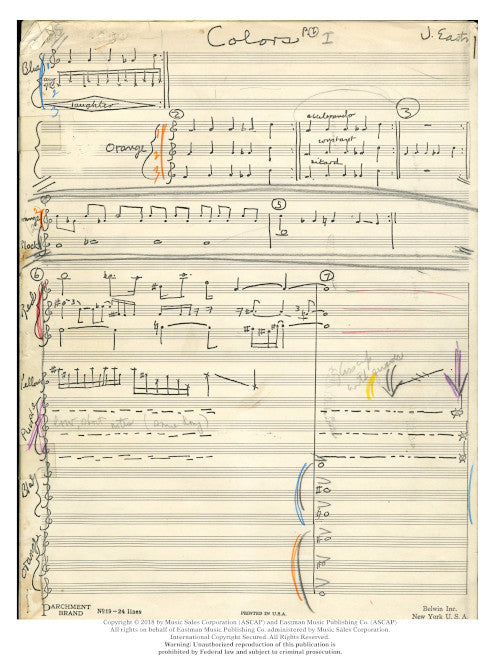 Colors I
J. East
Blue 1
2
3
laughter
②
③
Orange
1
2
3
accelerando
constant
ritard
⑤
⑥
⑦
Red
3
7
3
Yellow
gliss up
Purple
low, short notes (same key)
Blue
Orange
PARCHMENT BRAND
No 19 – 24 lines
PRINTED IN U.S.A.
Belwin Inc.
New York U. S. A.
Copyright © 2018 by Music Sales Corporation (ASCAP) and Eastman Music Publishing Co. (ASCAP)
All rights on behalf of Eastman Music Publishing Co. administered by Music Sales Corporation.
International Copyright Secured. All Rights Reserved.
Warning: Unauthorized reproduction of this publication is
prohibited by Federal law and subject to criminal prosecution.